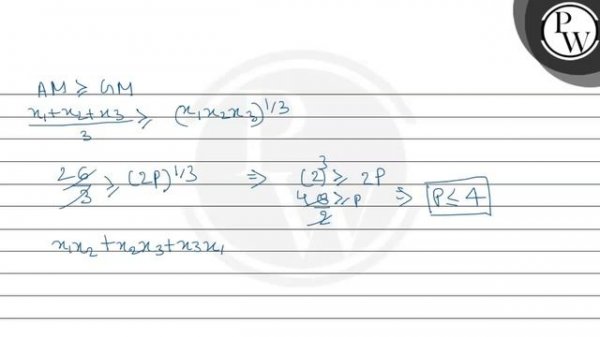 P
W
AM ≥ GM
x₁+x₂+x₃/3 ≥ (x₁x₂x₃)^1/3
2 6/3 ≥ (2P)^1/3 ⇒ (2)^3 ≥ 2P
4 8/2 ≥ P ⇒ P ≤ 4
x₁x₂ + x₂x₃ + x₃x₁